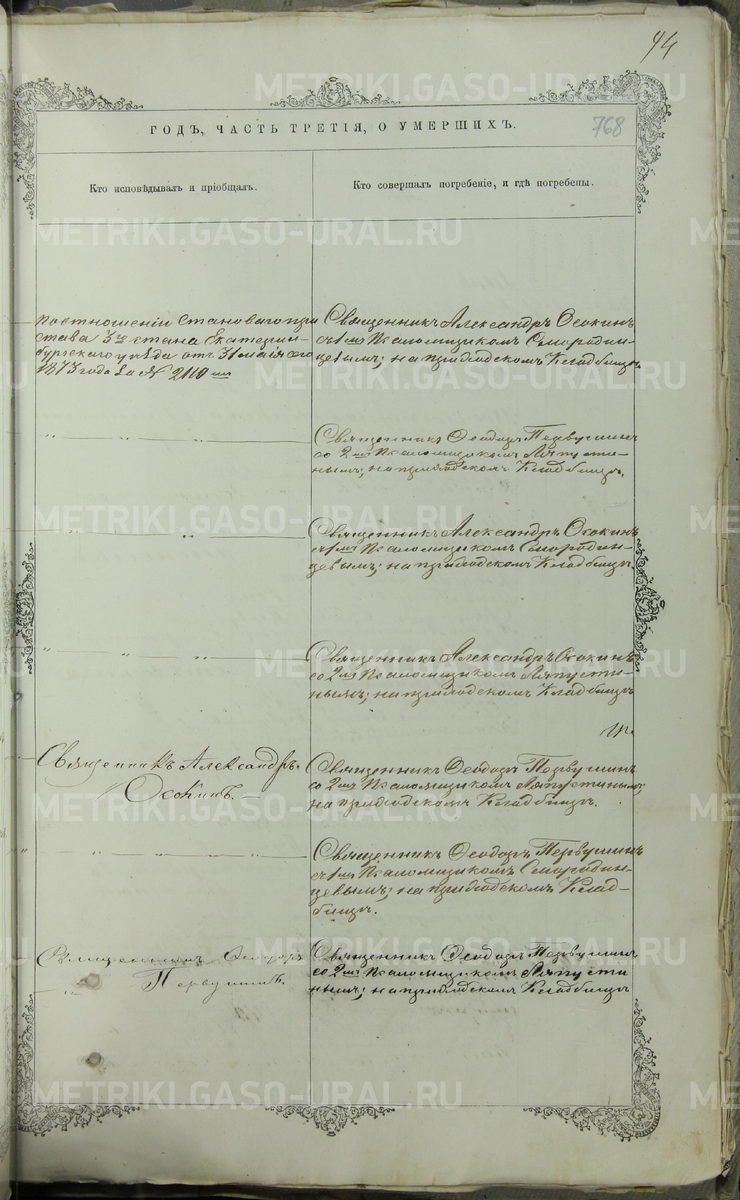 44
768
ГОДЪ, ЧАСТЬ ТРЕТІЯ, О УМЕРШИХЪ.
Кто исповѣдывалъ и пріобщалъ.
Кто совершалъ погребеніе, и гдѣ погребены.
По отношеніи Становаго при
става 3го стана Екатерин-
бургскаго уѣзда отъ 31 маія сего
1873 года за № 2110
Священникъ Александръ Осокинъ
съ 1мъ Псаломщикомъ Смородин-
цевымъ; на приходскомъ Кладбищѣ
Священникъ Ѳеодоръ Первушинъ
со 2мъ Псаломщикомъ Ляпусти-
нымъ; на приходскомъ Кладбищѣ.
Священникъ Александръ Осокинъ
съ 1мъ Псаломщикомъ Смородин-
цевымъ; на приходскомъ Кладбищѣ.
Священникъ Александръ Осокинъ
со 2мъ Псаломщикомъ Ляпусти-
нымъ; на приходскомъ Кладбищѣ
Священникъ Александръ
Осокинъ.
Священникъ Ѳеодоръ Первушинъ
со 2мъ Псаломщикомъ Ляпустинымъ;
на приходскомъ Кладбищѣ.
Священникъ Ѳеодоръ Первушинъ
съ 1мъ Псаломщикомъ Смородин-
цевымъ; на приходскомъ Клад-
бищѣ.
Священникъ Ѳеодоръ
Первушинъ.
Священникъ Ѳеодоръ Первушинъ
со 2мъ Псаломщикомъ Ляпусти
нымъ; на приходскомъ Кладбищѣ
METRIKI.GASO-URAL.RU